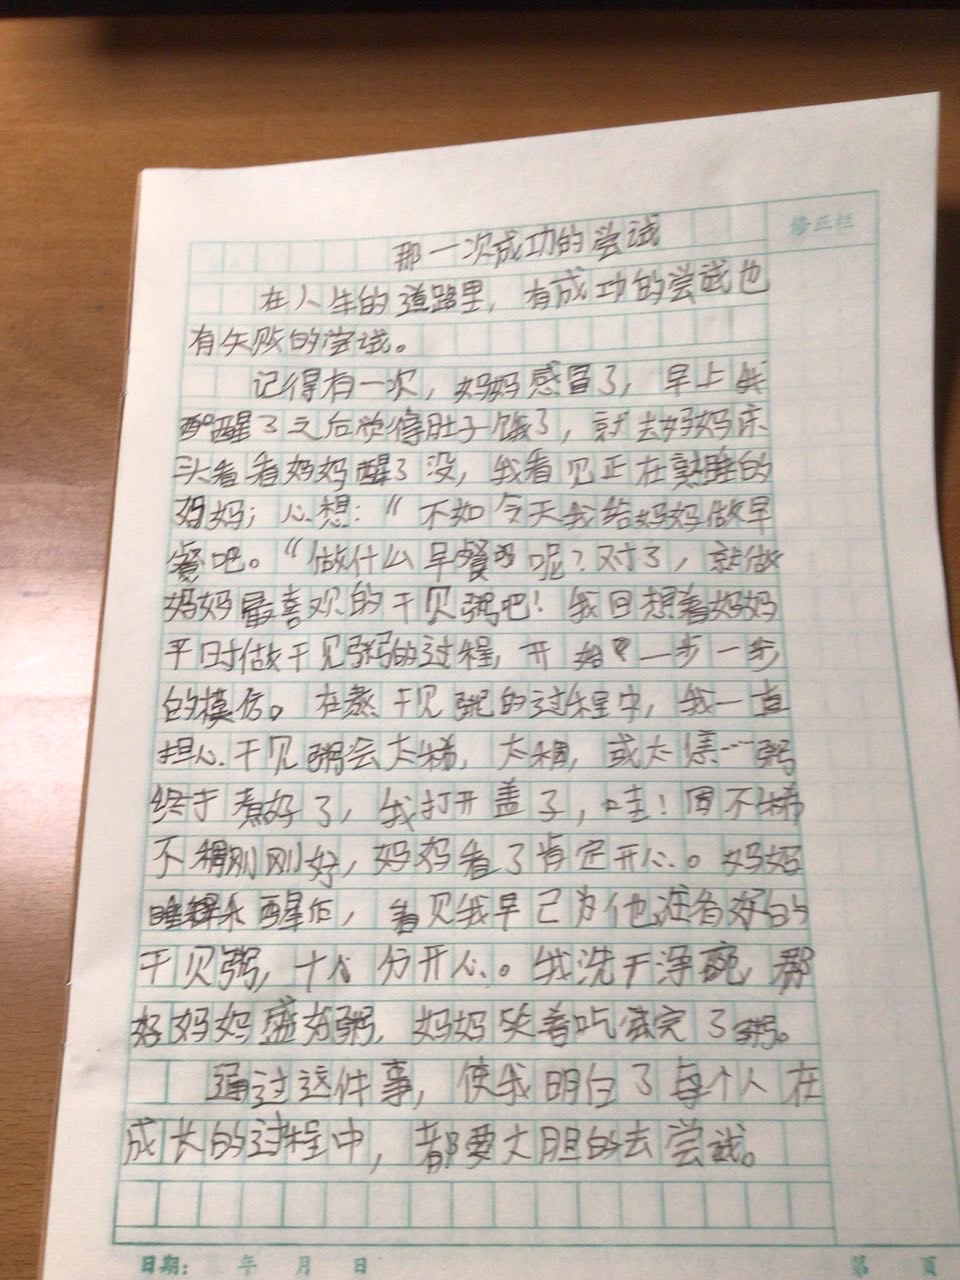 那一次成功的尝试
修正栏
在人生的道路里，有成功的尝试也
有失败的尝试。
记得有一次，妈妈感冒了，早上我
醒了之后觉得肚子饿了，就去妈妈床
头看看妈妈醒了没，我看见正在熟睡的
妈妈；心想：“不如今天我给妈妈做早
餐吧。“做什么早餐呢？对了，就做
妈妈最喜欢的干贝粥吧！我回想着妈妈
平时做干贝粥的过程，开始一步一步
的模仿。在熬干贝粥的过程中，我一直
担心干贝粥会太稀，太稠，或太焦……粥
终于煮好了，我打开盖子，哇！周不稀
不稠刚刚好，妈妈看了肯定开心。妈妈
醒后，看见我早已为他准备好的
干贝粥，十分开心。我洗干净碗，帮
妈妈盛好粥，妈妈笑着吃完了粥。
通过这件事，使我明白了每个人在
成长的过程中，都要大胆的去尝试。
日期： 年 月 日 第 页